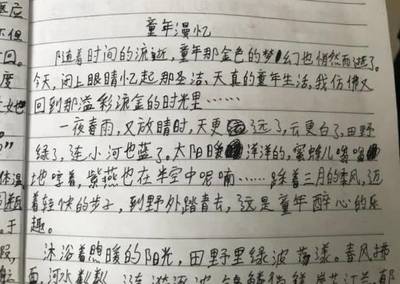 童年漫忆
随着时间的流逝，童年那金色的梦幻也悄然而逝了。
今天，闭上眼睛忆起那圣洁、天真的童年生活，我仿佛又
回到那溢彩流金的时光里……
一夜春雨，又放晴时，天更远了，云更白了，田野
绿了，连小河也蓝了。太阳暖洋洋的，蜜蜂儿嗡嗡
地哼着，紫燕也在半空中呢喃……踩着三月的柔风，迈
着轻快的步子，到野外踏青去，这是童年醉心的乐
趣。
沐浴着煦暖的阳光，田野里绿波荡漾。春风拂
面，河水粼粼